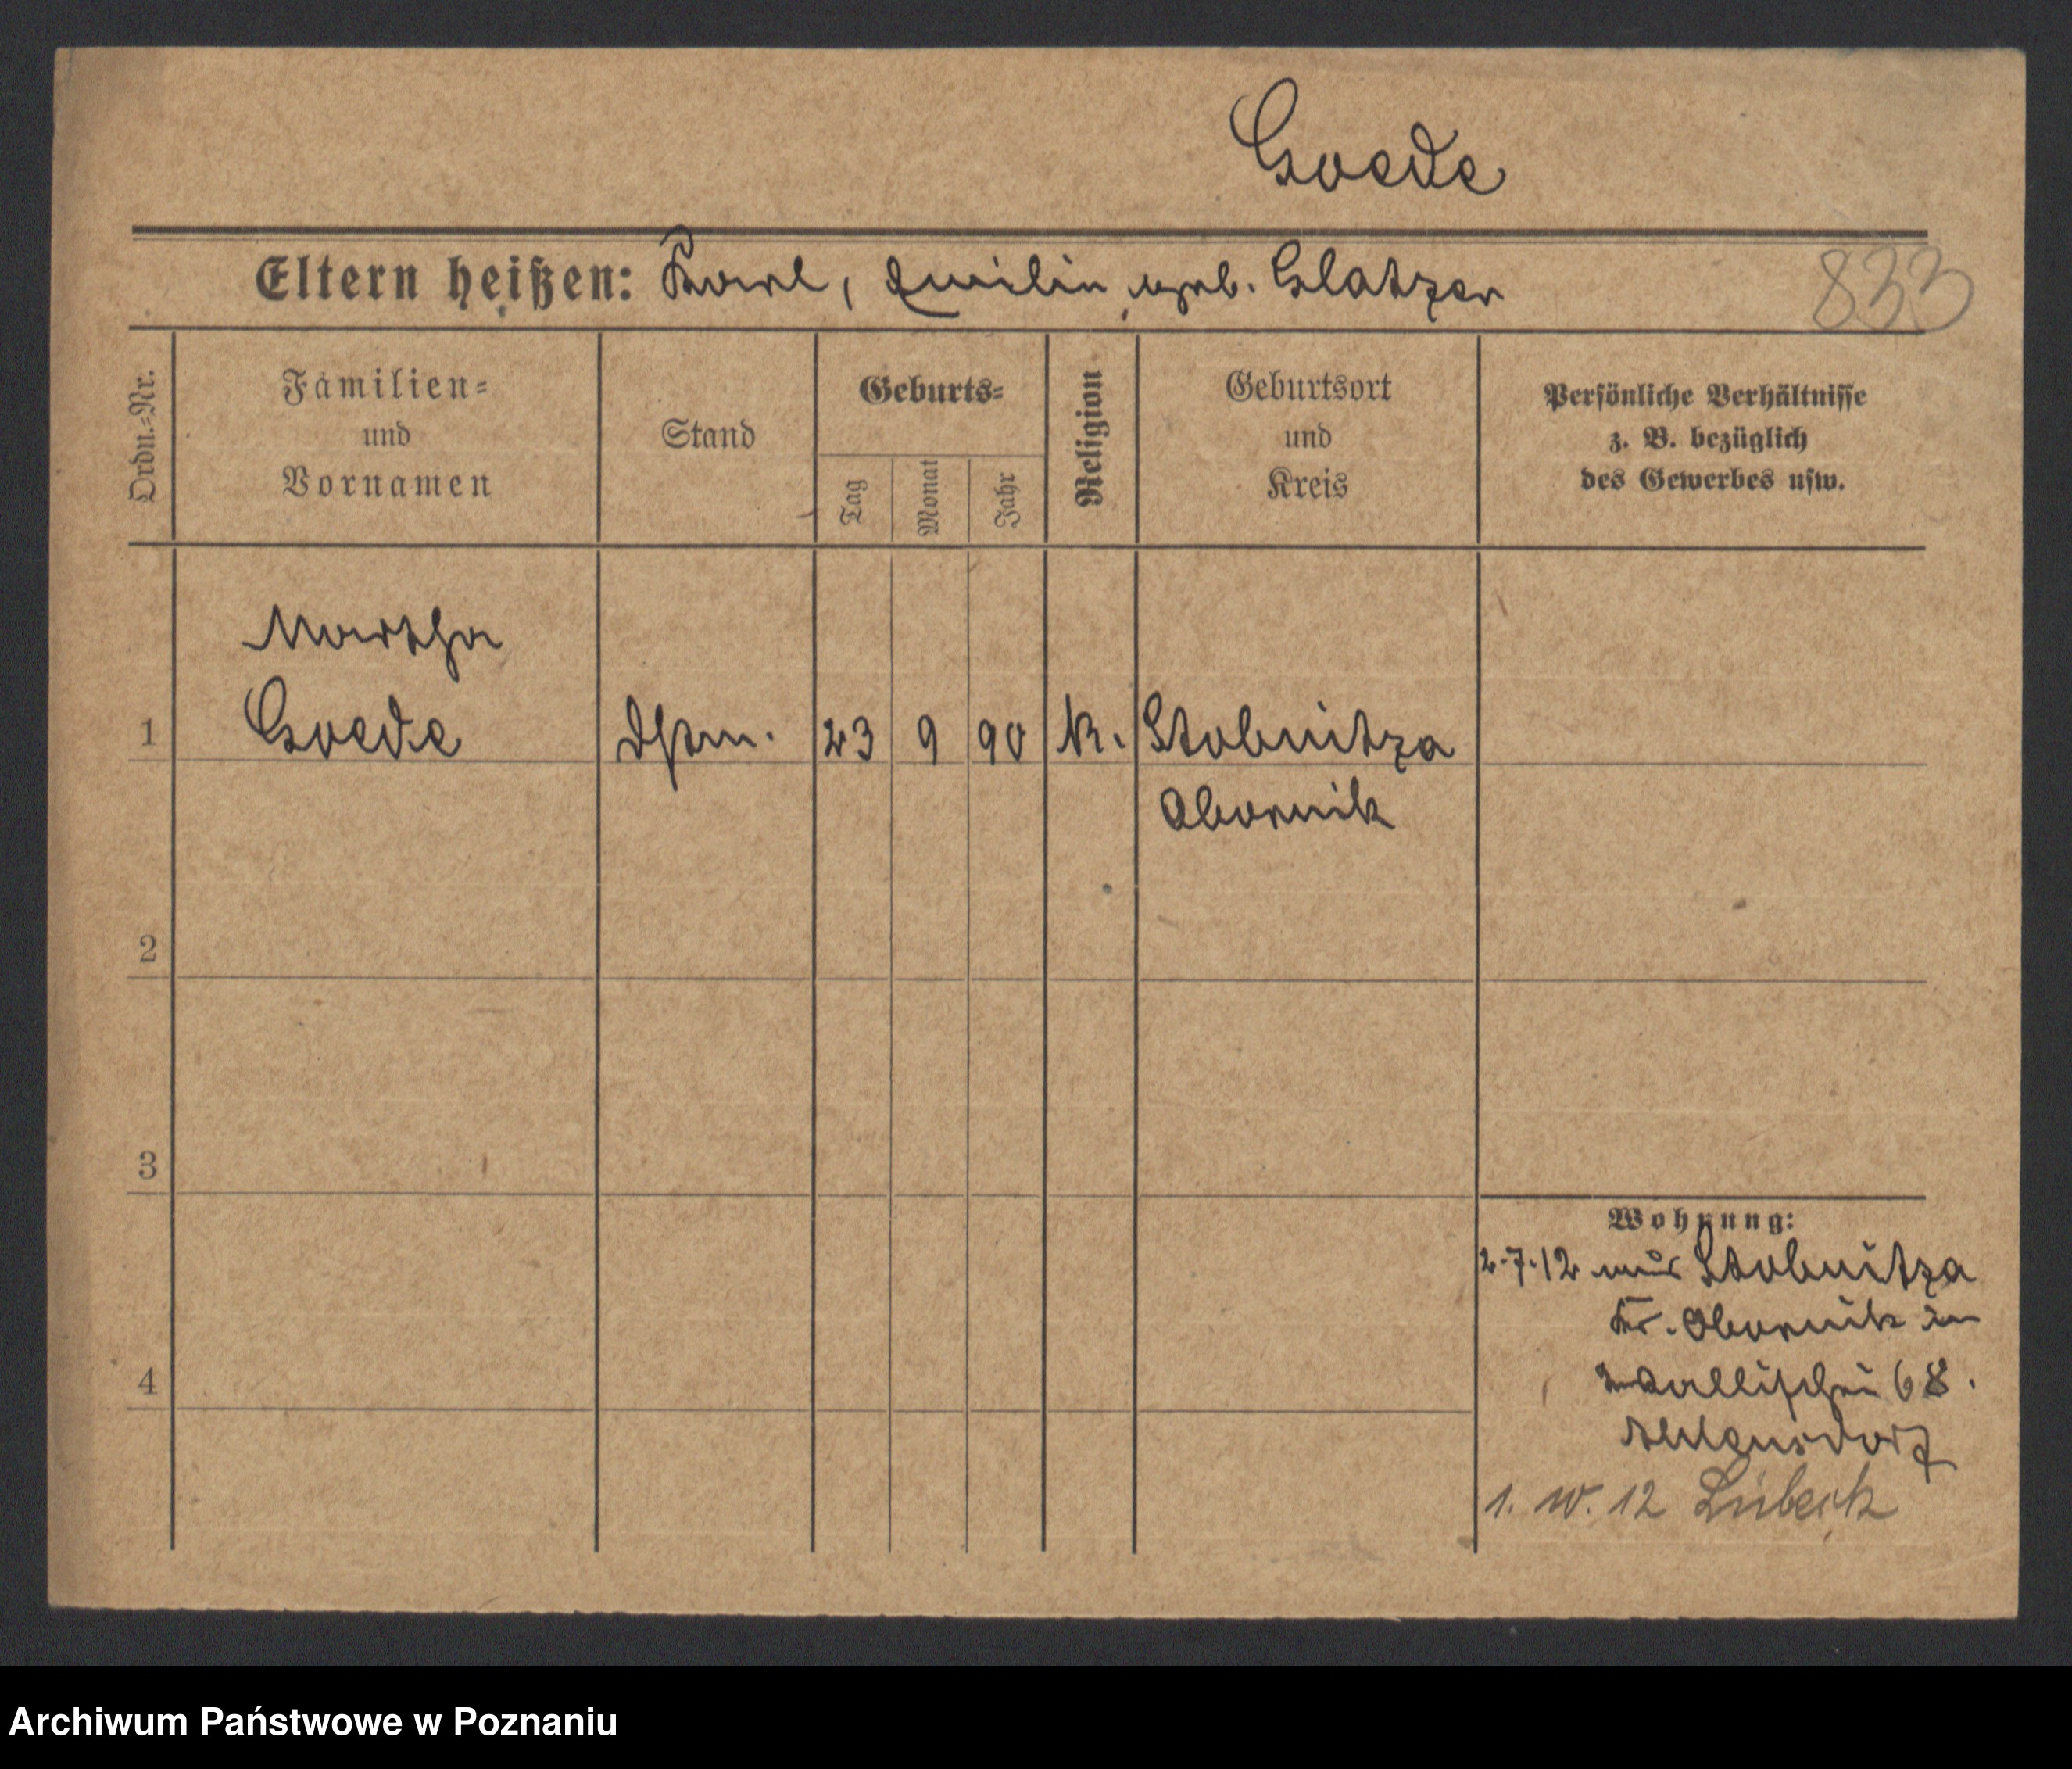 Goede
Eltern heißen: Karl, Emilie geb. Glatzer
833
Ordn.-Nr.
Familien-
und
Vornamen
Stand
Geburts-
Tag
Monat
Jahr
Religion
Geburtsort
und
Kreis
Persönliche Verhältnisse
z. B. bezüglich
des Gewerbes usw.
Martha
1 Goede 23 9 90 k. Stobnitza
Obornik
2
3
Wohnung:
2.7.12 aus Stobnitza
Kr. Obornik in
4 Wallischei 68.
1. 10. 12 Lübeck
Archiwum Państwowe w Poznaniu